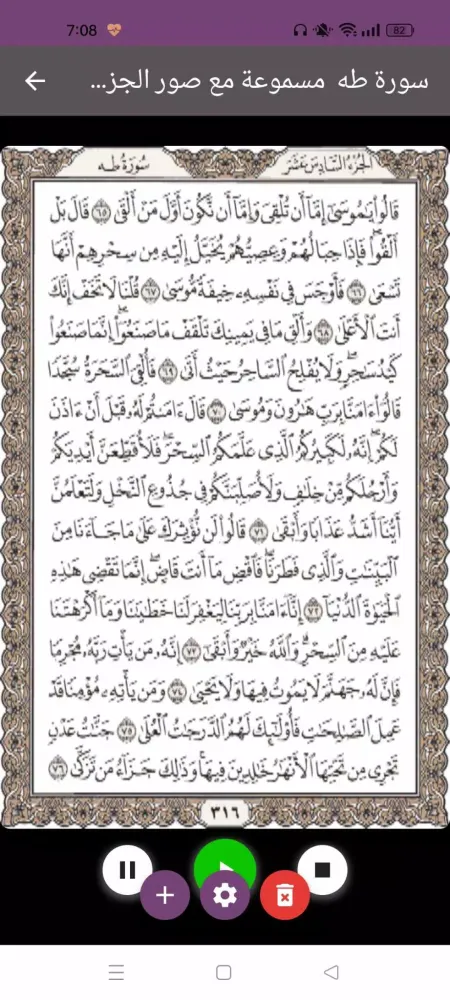 7:08
82
سورة طه مسموعة مع صور الجز...
الجزء السادس عشر
سورة طه
قَالُوا۟ يَـٰمُوسَىٰٓ إِمَّآ أَن تُلْقِىَ وَإِمَّآ أَن نَّكُونَ أَوَّلَ مَنْ أَلْقَىٰ ٦٥ قَالَ بَلْ
أَلْقُوا۟ ۖ فَإِذَا حِبَالُهُمْ وَعِصِيُّهُمْ يُخَيَّلُ إِلَيْهِ مِن سِحْرِهِمْ أَنَّهَا
تَسْعَىٰ ٦٦ فَأَوْجَسَ فِى نَفْسِهِۦ خِيفَةً مُّوسَىٰ ٦٧ قُلْنَا لَا تَخَفْ إِنَّكَ
أَنتَ ٱلْأَعْلَىٰ ٦٨ وَأَلْقِ مَا فِى يَمِينِكَ تَلْقَفْ مَا صَنَعُوٓا۟ ۖ إِنَّمَا صَنَعُوا۟
كَيْدُ سَـٰحِرٍ ۖ وَلَا يُفْلِحُ ٱلسَّاحِرُ حَيْثُ أَتَىٰ ٦٩ فَأُلْقِىَ ٱلسَّحَرَةُ سُجَّدًا
قَالُوٓا۟ ءَامَنَّا بِرَبِّ هَـٰرُونَ وَمُوسَىٰ ٧٠ قَالَ ءَامَنتُمْ لَهُۥ قَبْلَ أَنْ ءَاذَنَ
لَكُمْ ۖ إِنَّهُۥ لَكَبِيرُكُمُ ٱلَّذِى عَلَّمَكُمُ ٱلسِّحْرَ ۖ فَلَأُقَطِّعَنَّ أَيْدِيَكُمْ
وَأَرْجُلَكُم مِّنْ خِلَـٰفٍ وَلَأُصَلِّبَنَّكُمْ فِى جُذُوعِ ٱلنَّخْلِ وَلَتَعْلَمُنَّ
أَيُّنَآ أَشَدُّ عَذَابًا وَأَبْقَىٰ ٧١ قَالُوا۟ لَن نُّؤْثِرَكَ عَلَىٰ مَا جَآءَنَا مِنَ
ٱلْبَيِّنَـٰتِ وَٱلَّذِى فَطَرَنَا ۖ فَٱقْضِ مَآ أَنتَ قَاضٍ ۖ إِنَّمَا تَقْضِى هَـٰذِهِ
ٱلْحَيَوٰةَ ٱلدُّنْيَآ ٧٢ إِنَّآ ءَامَنَّا بِرَبِّنَا لِيَغْفِرَ لَنَا خَطَـٰيَـٰنَا وَمَآ أَكْرَهْتَنَا
عَلَيْهِ مِنَ ٱلسِّحْرِ ۗ وَٱللَّهُ خَيْرٌ وَأَبْقَىٰٓ ٧٣ إِنَّهُۥ مَن يَأْتِ رَبَّهُۥ مُجْرِمًا
فَإِنَّ لَهُۥ جَهَنَّمَ لَا يَمُوتُ فِيهَا وَلَا يَحْيَىٰ ٧٤ وَمَن يَأْتِهِۦ مُؤْمِنًا قَدْ
عَمِلَ ٱلصَّـٰلِحَـٰتِ فَأُو۟لَـٰٓئِكَ لَهُمُ ٱلدَّرَجَـٰتُ ٱلْعُلَىٰ ٧٥ جَنَّـٰتُ عَدْنٍ
تَجْرِى مِن تَحْتِهَا ٱلْأَنْهَـٰرُ خَـٰلِدِينَ فِيهَا ۚ وَذَٰلِكَ جَزَآءُ مَن تَزَكَّىٰ ٧٦
٣١٦